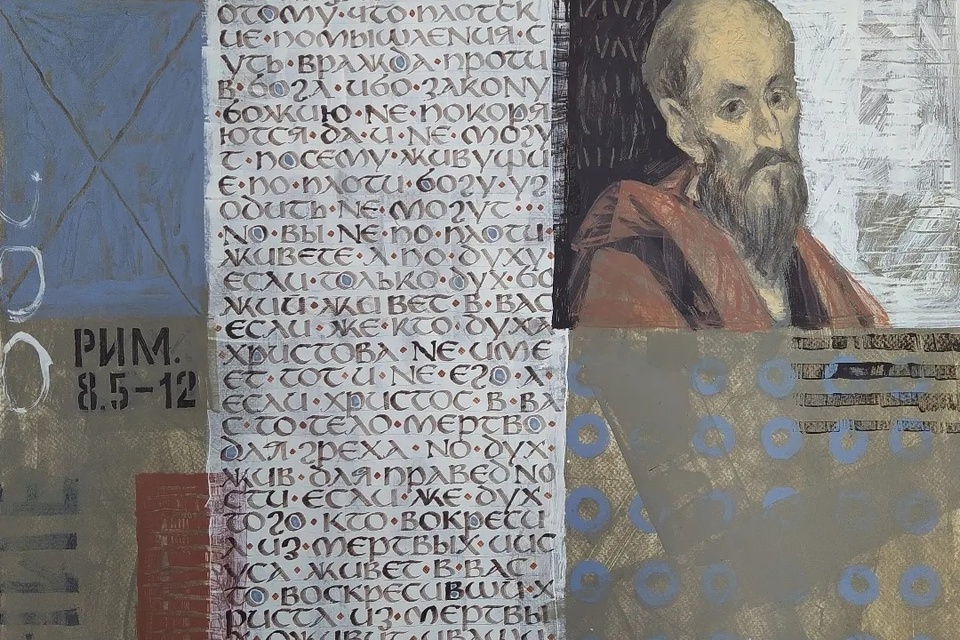 отому·что·плотск
ие·помышления·с
уть·вражда·проти
в·бога·ибо·закону
·божию·не·покоря
ются·да·и·не·могу
т·посему·живущи
е·по·плоти·богу·уг
одить·не·могут··
но·вы·не·по·плоти·
живете·а·по·духу·
если·только·дух·бо
жий·живет·в·вас
·если·же·кто·духа
·христова·не·име
ет·тот·и·не·его·а·
если·христос·в·ва
с·то·тело·мертво
для·греха·но·дух·
жив·для·праведно
сти·если·же·дух·
того·кто·вокреси
л·из·мертвых·иис
уса·живет·в·вас·
то·воскресивши·х
риста·из·мертвы
РИМ.
8.5-12